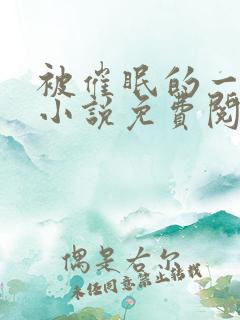 被催眠的一
小说免费阅
偶是右尔
未经同意禁止转载